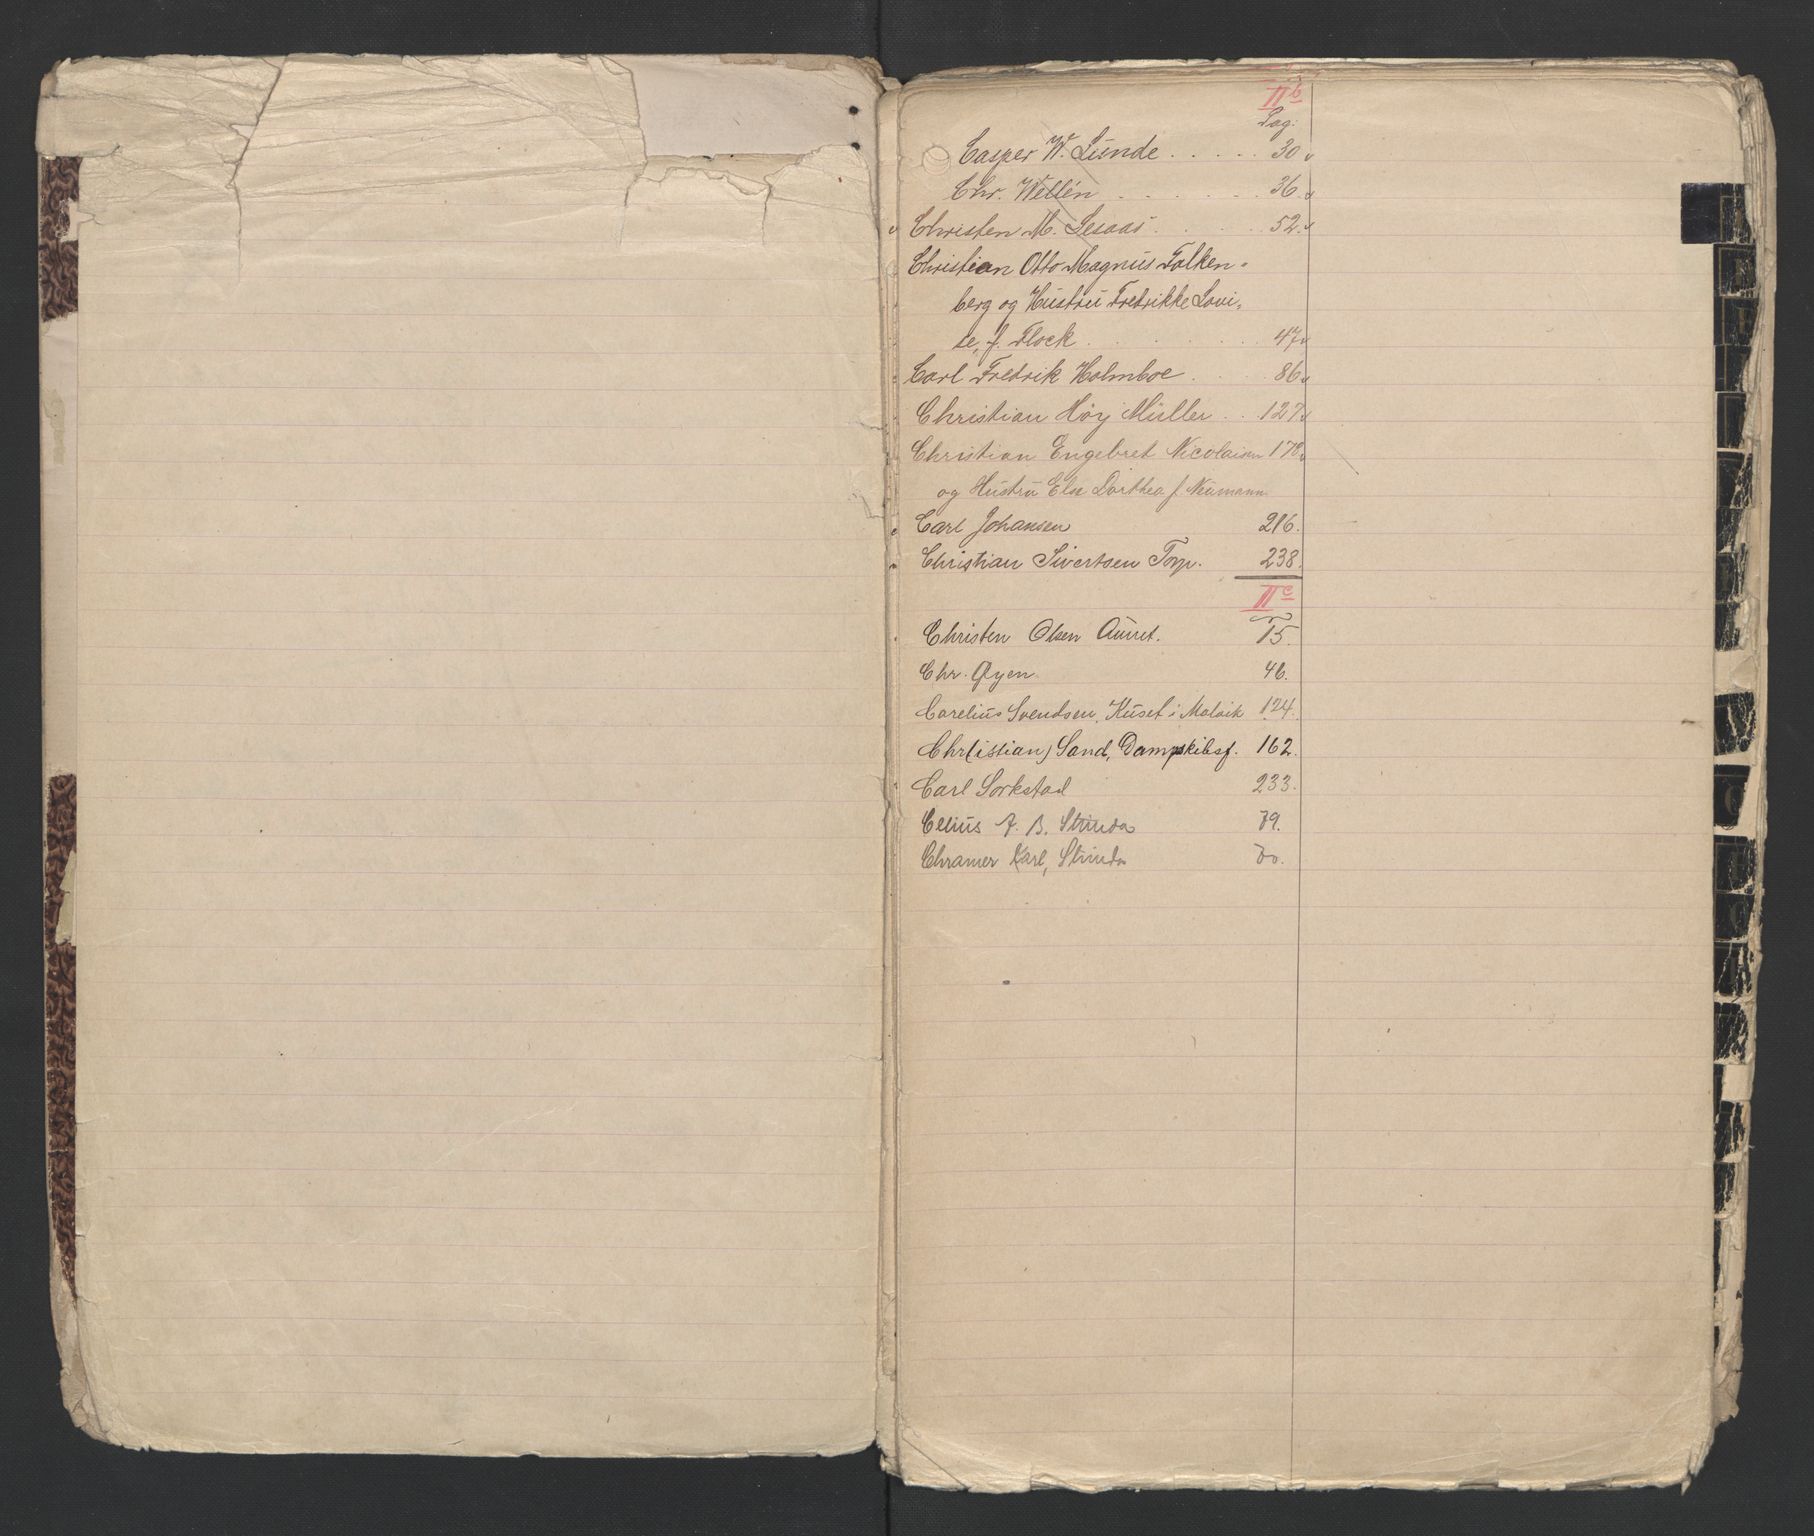 II b
Pag:
Casper W. Lunde . . . . . 30 v
Chr. Wellén . . . . . . . 36. v
Christen M. Lesaas . . . . . 52. v
Christian Otto Magnus Falken-
berg og Hustru Fredrikke Lovi-
se, f. Flock . . . . . . . 47 v
Carl Fredrik Holmboe . . . . 86 v
Christian Høij Müller . . . 127 v
Christian Engebret Nicolaisen 178 v
og Hustru Else Dorthea f. Neumann
Carl Johansen 216.
Christian Sivertsen Torp. 238.
II c
Christen Olsen Aunet. 15.
Chr. Øyen. 46.
Carelius Svendsen, Kuset i Malvik 124.
Chr(istian) Sand, Dampskibsf. 162.
Carl Sorkstad 233.
Celius A. B. Strinda 79.
Chramer Karl, Strinda 70.